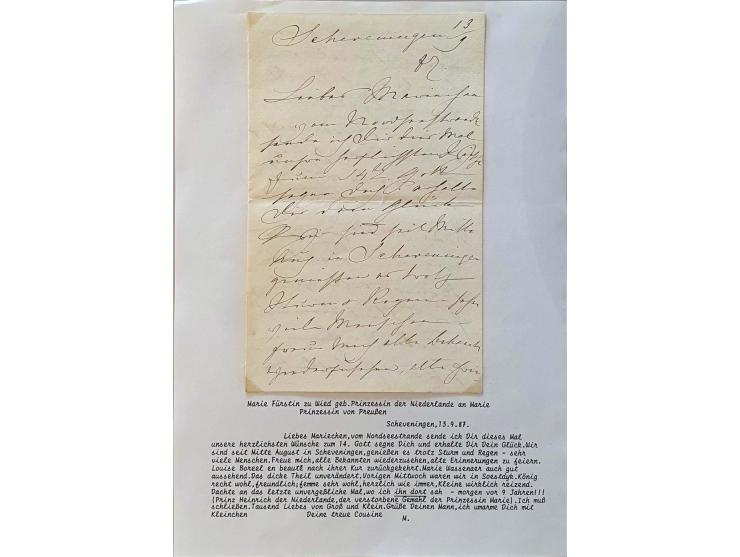 Scheveningen 13/9
87.
Liebes Mariechen
vom Nordseestrande
sende ich Dir dies Mal
unsere herzlichsten Wünsche
zum 14ten. Gott
segne Dich u erhalte
Dir Dein Glück
Wir sind seit Mitte
Aug. in Scheveningen
genießen es trotz
Sturm u Regen – sehr
viele Menschen –
freue mich alle Bekannten
wiederzusehen, alte Erin-
Marie Fürstin zu Wied geb.Prinzessin der Niederlande an Marie
Prinzessin von Preußen
Scheveningen,13.9.87.
Liebes Mariechen,vom Nordseestrande sende ich Dir dieses Mal
unsere herzlichsten Wünsche zum 14. Gott segne Dich und erhalte Dir Dein Glück.Wir
sind seit Mitte August in Scheveningen,genießen es trotz Sturm und Regen - sehr
viele Menschen.Freue mich,alle Bekannten wiederzusehen,alte Erinnerungen zu feiern.
Louise Boreel en beauté nach ihrer Kur zurückgekehrt.Marie Wassenaer auch gut
aussehend.Das dicke Theil unverändert.Vorigen Mittwoch waren wir in Soestdyk.König
recht wohl,freundlich;femme sehr wohl,herzlich wie immer,Kleine wirklich reizend.
Dachte an das letzte unvergeßliche Mal,wo ich ihn dort sah - morgen vor 9 Jahren!!!
(Prinz Heinrich der Niederlande,der verstorbene Gemahl der Prinzessin Marie).Ich muß
schließen.Tausend Liebes von Groß und Klein.Grüße Deinen Mann,ich umarme Dich mit
Kleinchen Deine treue Cousine
M.